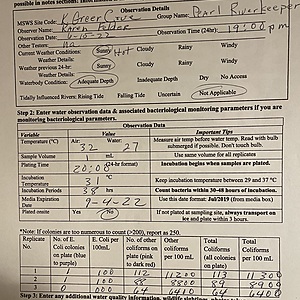 possible in notes section).
Observation Details
MSWS Site Code: K Greer Cove Group Name: Pearl Riverkeeper
Observer Name: Karen
Observation Date: 9-18-22 Observation Time (24hr): 19:00 pm
Other Testers: na
Current Weather Conditions: Sunny Hot Cloudy Rainy Windy
Weather Conditions
Weather previous 24-hr: Sunny Cloudy Rainy Windy
Waterbody Condition: Adequate Depth Inadequate Depth Dry No Access
Tidally Influenced Rivers: Rising Tide Falling Tide Uncertain Not Applicable
Step 2: Enter water observation data & associated bacteriological monitoring parameters if you are
monitoring bacteriological parameters.
Observation Data
Variable Value Important Tips
Temperature (°C) Air: 32 Water: 27 Measure air temp before water temp. Read with bulb submerged if possible. Don't touch bulb.
Sample Volume 1 mL Use same volume for all replicates
Plating Time 20:00 (24-hr format) Incubation begins when samples are plated.
Incubation Temperature 31 °C Keep incubation temperature between 29 and 37 °C
Incubation Periods 38 hrs Count bacteria within 30-48 hours of incubation.
Media Expiration Date 9-4-22 Use this date format: Jul/2019 (from media box)
Plated onsite Yes No If not plated at sampling site, always transport on ice and plate within 3 hours.
*Note: If colonies are too numerous to count (>200), report as 250.
Replicate No. No. of E. Coli colonies on plate (blue to purple) E. Coli per 100mL No. of other coliforms on plate (pink to dark red) Other coliforms per 100 mL Total Coliforms (all colonies on plate) Total Coliforms per 100 mL
1 1 100 112 11200 113 11300
2 1 100 88 8800 89 8900
3 0 000 64 6400 64 6400
Step 3: Enter any additional water quality information,